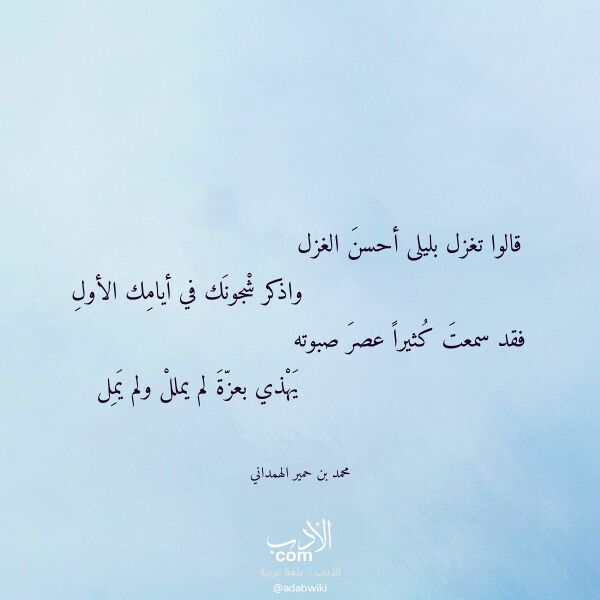 قالوا تغزل بليلى أحسنَ الغزل
واذكر شْجونَك في أيامِك الأولِ
فقد سمعتَ كُثيراً عصرَ صبوته
يَهْذي بعزّةَ لم يمللْ ولم يَمِل
محمد بن حمير الهمداني
الأدب
com
الأدب .. بلغة عربية
@adabwiki